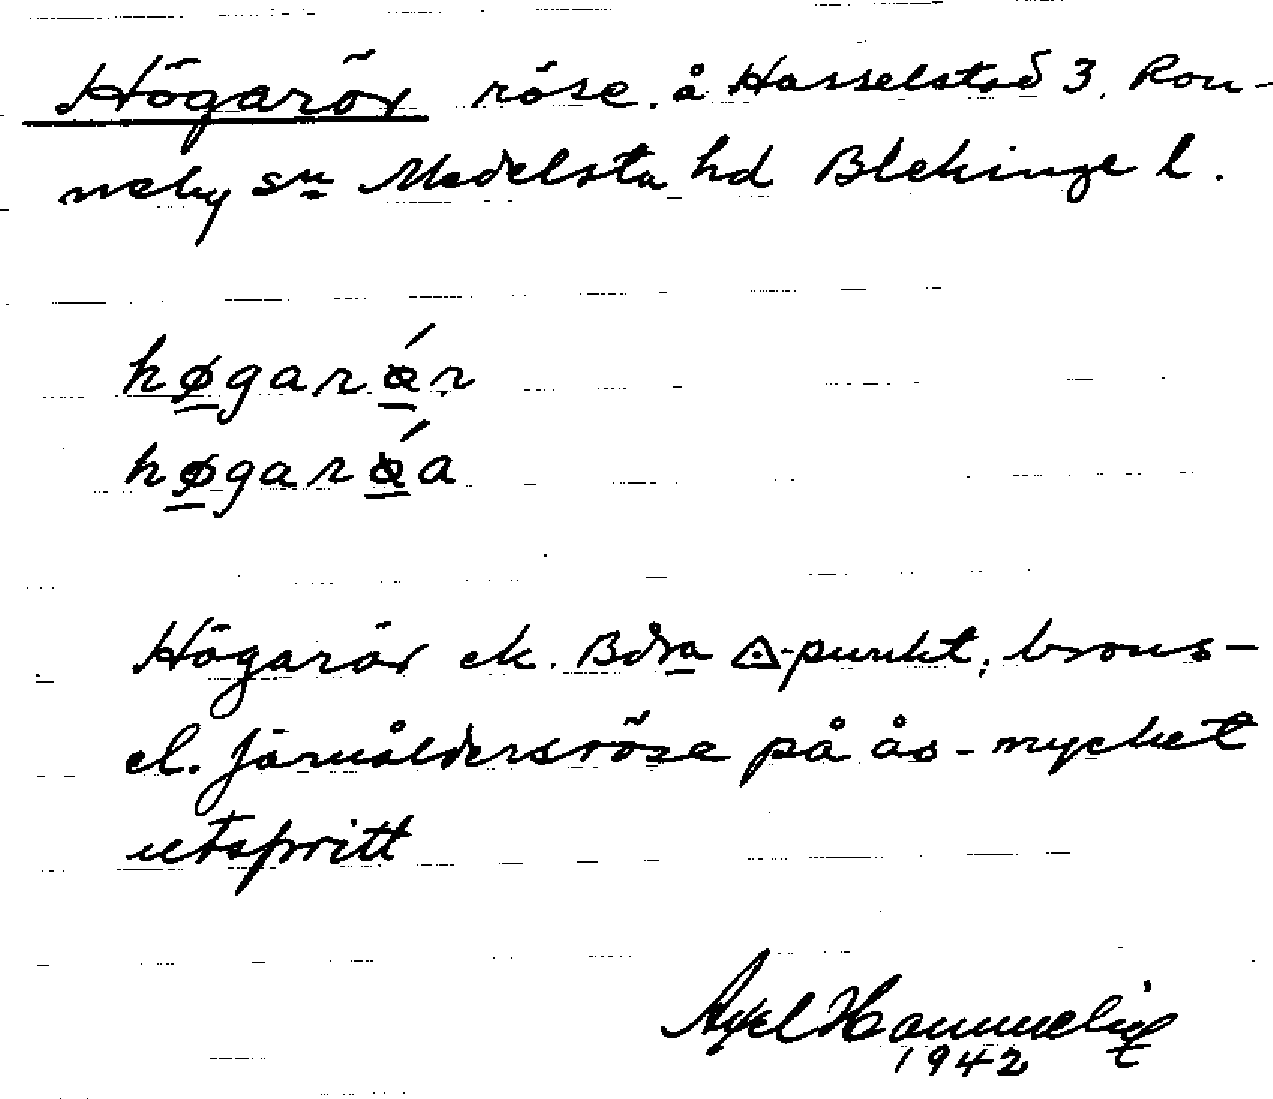 Högarör röse. å Hasselstad 3. Ron-
neby sn Medelsta hd Blekinge l.
høgarǿr
høgarǿa
Högarör ek. Bdra △-punkt, brons-
el. järnåldersröse på ås - mycket
utspritt
Axel
1942